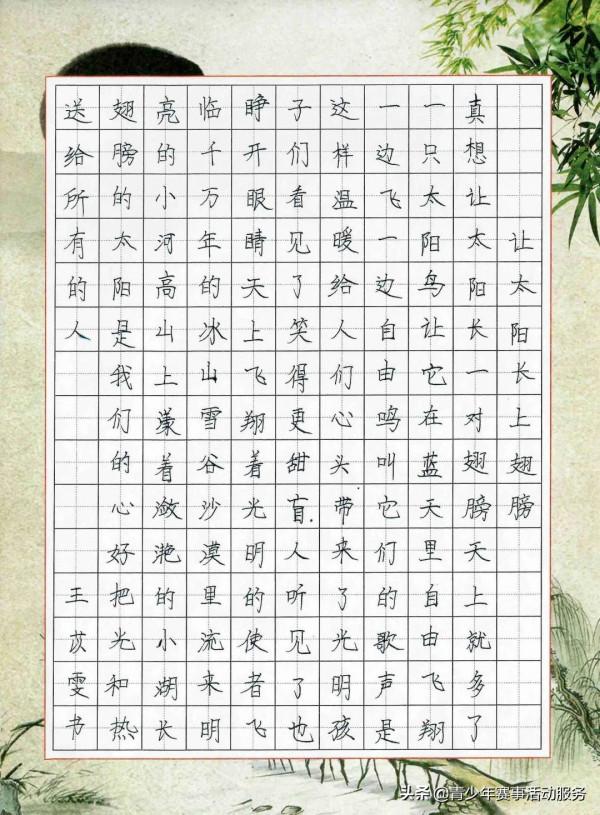 让太阳长上翅膀
真想让太阳长一对翅膀天上就多了
一只太阳鸟让它在蓝天里自由飞翔
一边飞一边自由鸣叫它们的歌声是
这样温暖给人们心头带来了光明孩
子们看见了笑得更甜盲人听见了也
睁开眼睛天上飞翔着光明的使者飞
临千万年的冰山雪谷沙漠里流来明
亮的小河高山上漾着潋滟的小湖长
翅膀的太阳是我们的心好把光和热
送给所有的人
王苡雯书
头条 @青少年赛事活动服务